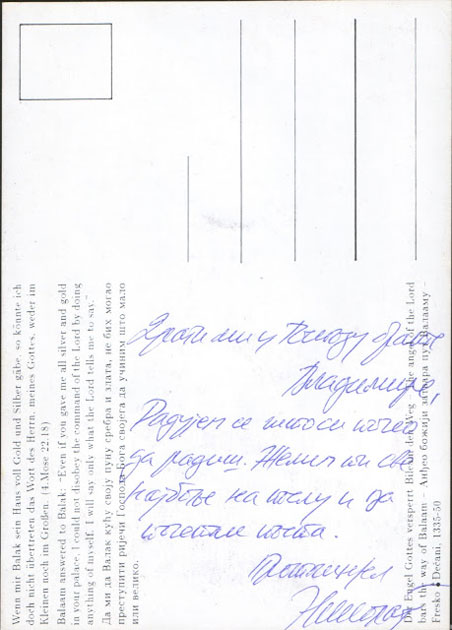 Wenn mir Balak sein Haus voll Gold und Silber gäbe, so könnte ich
doch nicht übertreten das Wort des Herrn, meines Gottes, weder im
Kleinen noch im Großen. (4.Mose 22.18)
Balaam answered to Balak: “Even if you gave me all silver and gold
in your palace, I could not disobey the command of the Lord by doing
anything of myself. I will say only what the Lord tells me to say.”
Да ми да Валак кућу своју пуну сребра и злата, не бих могао
преступити ријечи Господа Бога својега да учиним што мало
или велико.
Драги ми у Господу брате
Владимире,
Радујем се што си почео
да радиш. Желим ти све
најбоље на послу и да
Der Engel Gottes versperrt Bileam den Weg – The angel of the Lord
bars the way of Balaam – Анђео божији затвара пут Валааму –
Fresko • Dečani, 1335-50